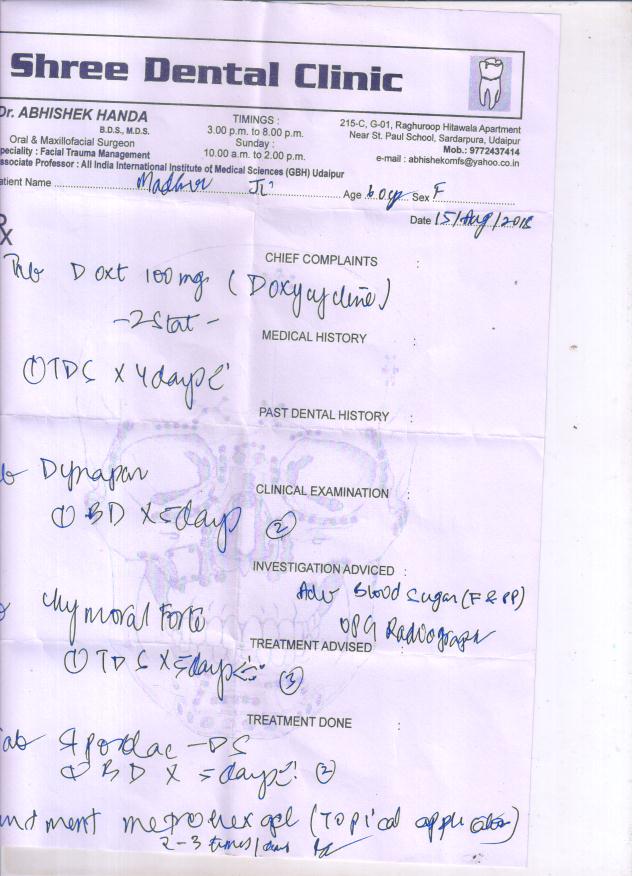 Shree Dental Clinic
Dr. ABHISHEK HANDA
B.D.S., M.D.S.
Oral & Maxillofacial Surgeon
peciality : Facial Trauma Management
ssociate Professor : All India International Institute of Medical Sciences (GBH) Udaipur
TIMINGS :
3.00 p.m. to 8.00 p.m.
Sunday :
10.00 a.m. to 2.00 p.m.
215-C, G-01, Raghuroop Hitawala Apartment
Near St. Paul School, Sardarpura, Udaipur
Mob.: 9772437414
e-mail : abhishekomfs@yahoo.co.in
atient Name Madhur Ji Age 60 Sex F
Date 15/Aug/2018
Rx
CHIEF COMPLAINTS :
Tab Doxt 100 mg (Doxycycline)
- 2 Stat -
MEDICAL HISTORY :
① TDS x 4 days
PAST DENTAL HISTORY :
b Dynapar
CLINICAL EXAMINATION :
① BD x 5 days ②
INVESTIGATION ADVICED :
Adv Blood Sugar (F & PP)
OPG Radiograph
Chymoral Forte
TREATMENT ADVISED :
① TDS x 5 days ③
TREATMENT DONE :
Tab Sporolac - DS
① BD x 5 days ②
ntment metrohex gel (Topical application)
2-3 times/day